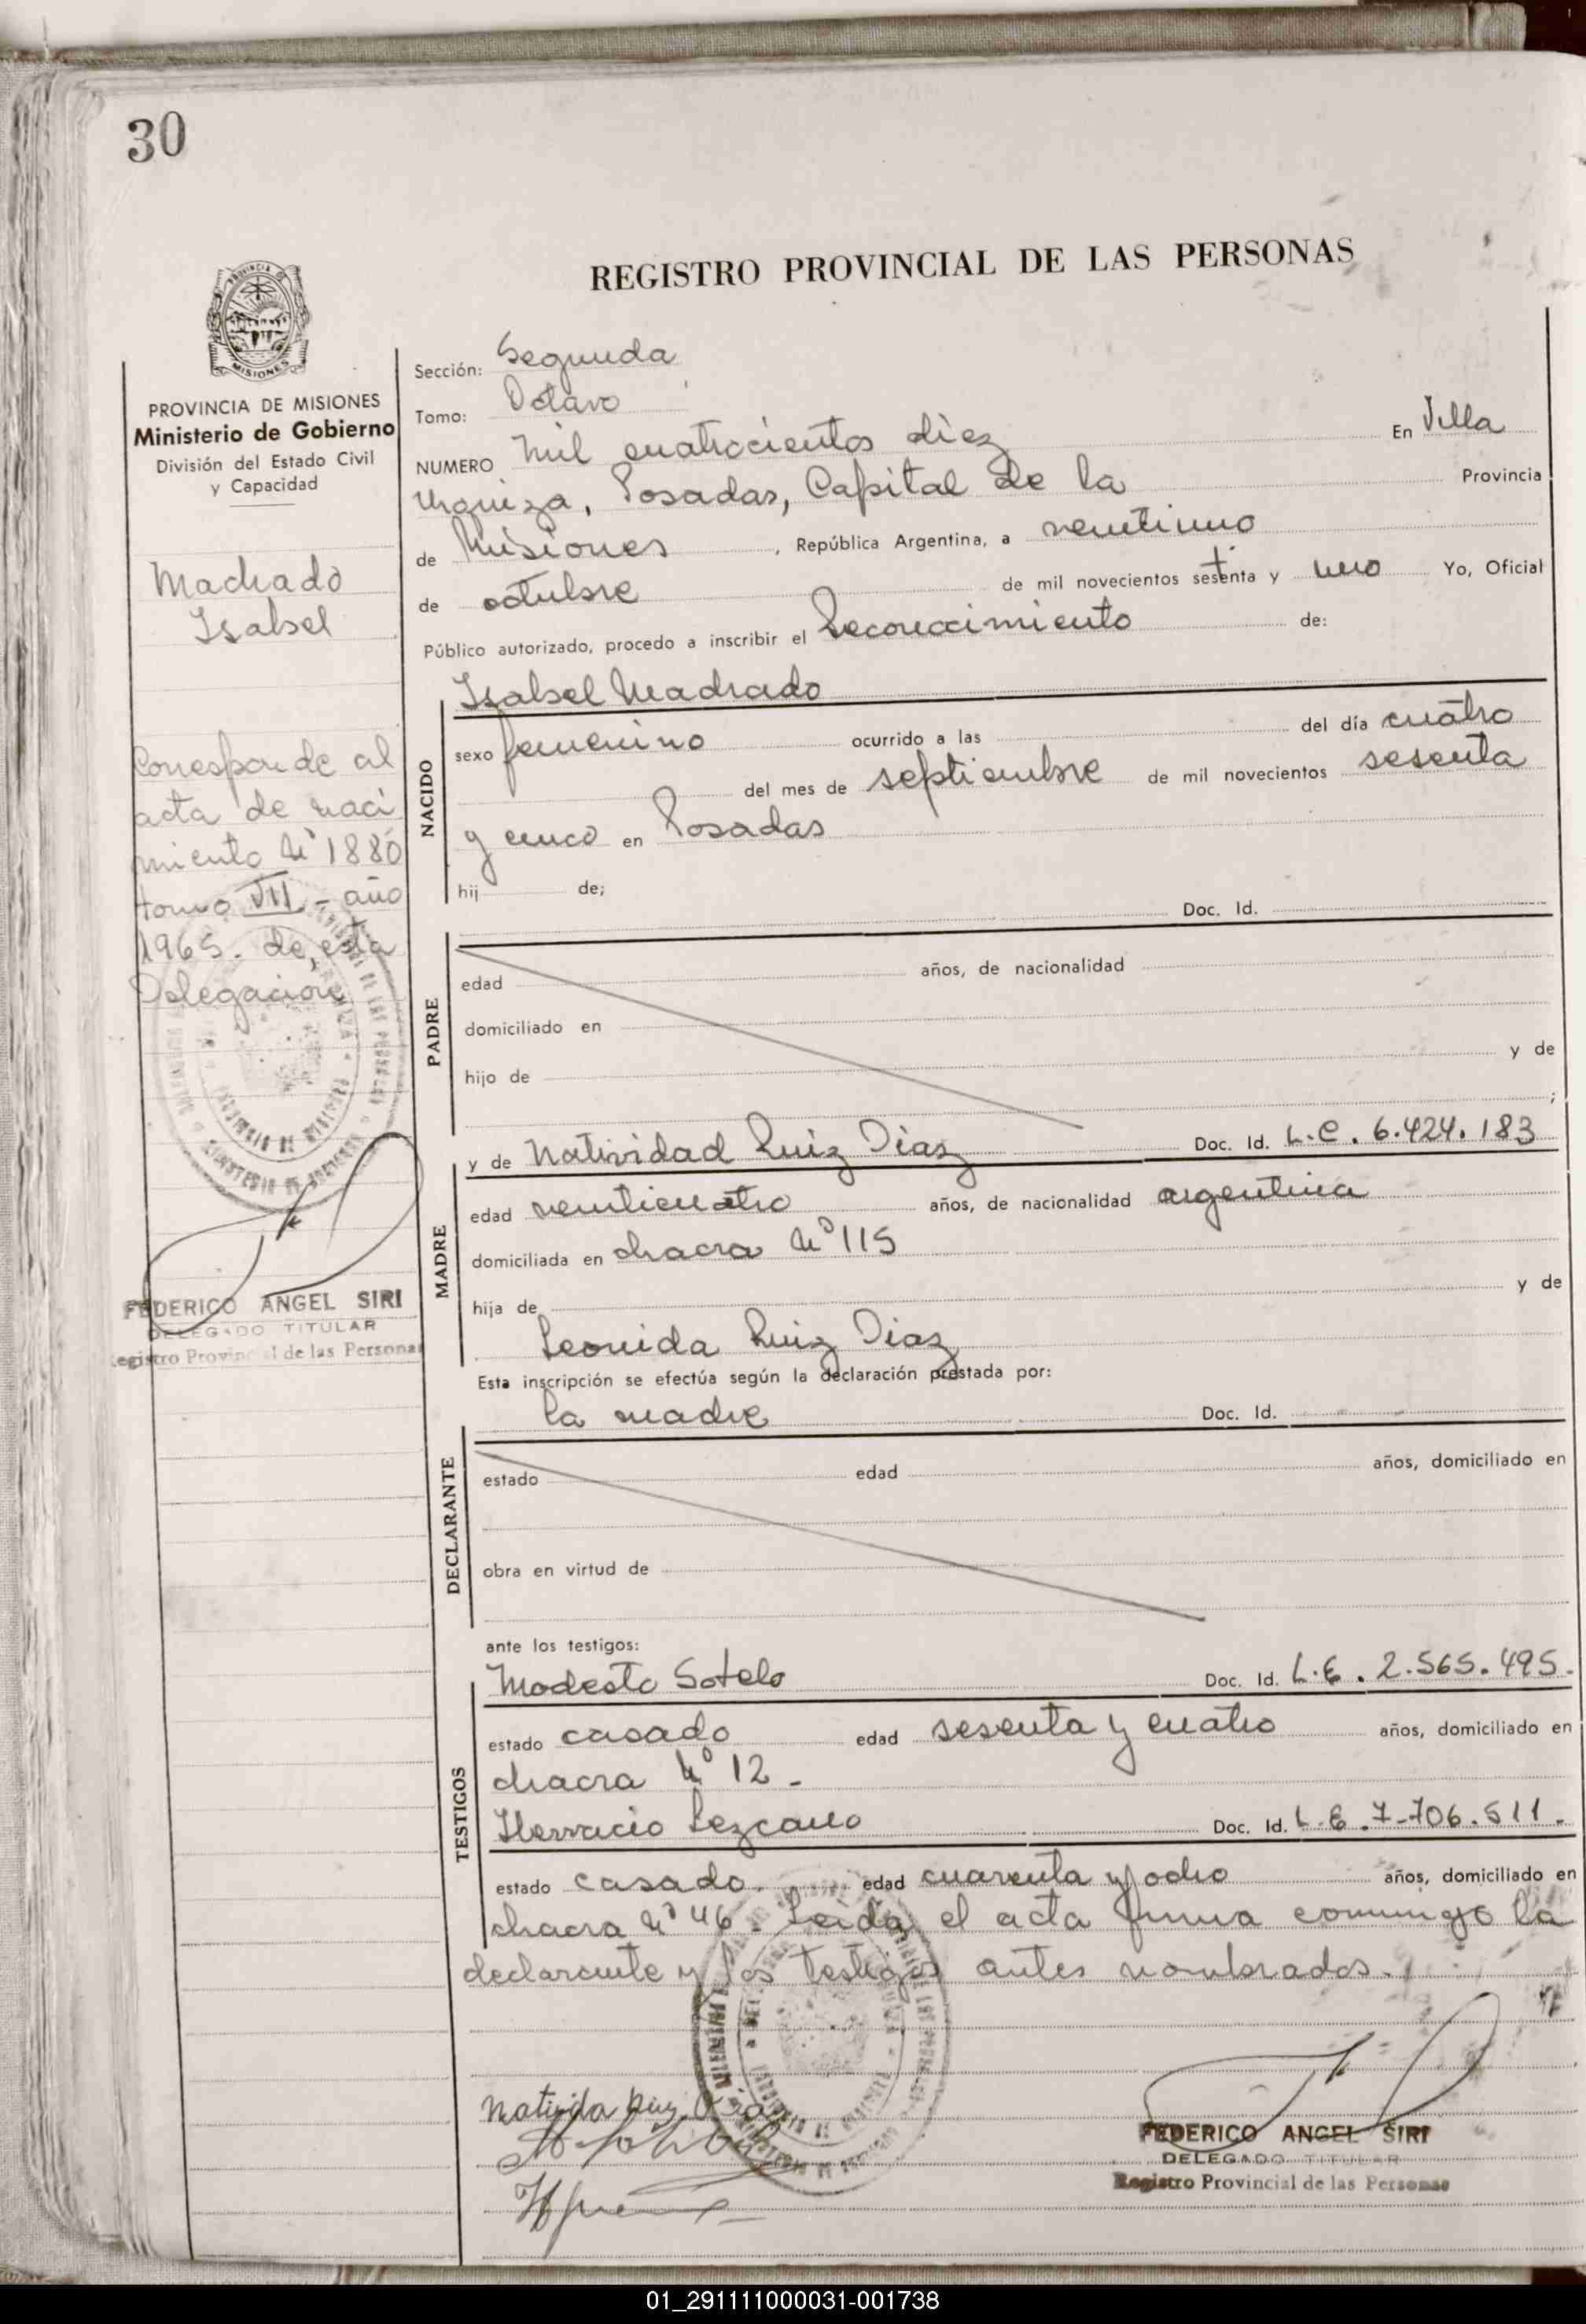 30
REGISTRO PROVINCIAL DE LAS PERSONAS
MISIONES
PROVINCIA DE MISIONES
Ministerio de Gobierno
División del Estado Civil
y Capacidad
Machado
Isabel
Corresponde al
acta de naci
miento Nº 1880
tomo VII - año
1965. de esta
Delegación
FEDERICO ANGEL SIRI
DELEGADO TITULAR
Registro Provincial de las Personas
Sección: Segunda
Tomo: Octavo
NUMERO Mil cuatrocientos diez En Villa
Urquiza, Posadas, Capital de la Provincia
de Misiones, República Argentina, a veintiuno
de octubre de mil novecientos setenta y uno Yo, Oficial
Público autorizado, procedo a inscribir el Reconocimiento de:
Isabel Machado
NACIDO
sexo femenino ocurrido a las del día cuatro
del mes de septiembre de mil novecientos sesenta
y cinco en Posadas
hij de;
Doc. Id.
PADRE
edad años, de nacionalidad
domiciliado en
hijo de y de
;
y de Natividad Ruiz Diaz Doc. Id. L.C. 6.424.183
MADRE
edad veinticuatro años, de nacionalidad argentina
domiciliada en chacra Nº 115
hija de y de
Leonida Ruiz Diaz
Esta inscripción se efectúa según la declaración prestada por:
la madre Doc. Id.
DECLARANTE
estado edad años, domiciliado en
obra en virtud de
ante los testigos:
Modesto Sotelo Doc. Id. L.E. 2.565.495.
TESTIGOS
estado casado edad sesenta y cuatro años, domiciliado en
chacra Nº 12 -
Lezcano Doc. Id. L.E. 7.706.511.
estado casado edad cuarenta y ocho años, domiciliado en
chacra Nº 46. Leida el acta firma conmigo la
declarante y los testigos antes nombrados.
FEDERICO ANGEL SIRI
DELEGADO TITULAR
Registro Provincial de las Personas
01_291111000031-001738